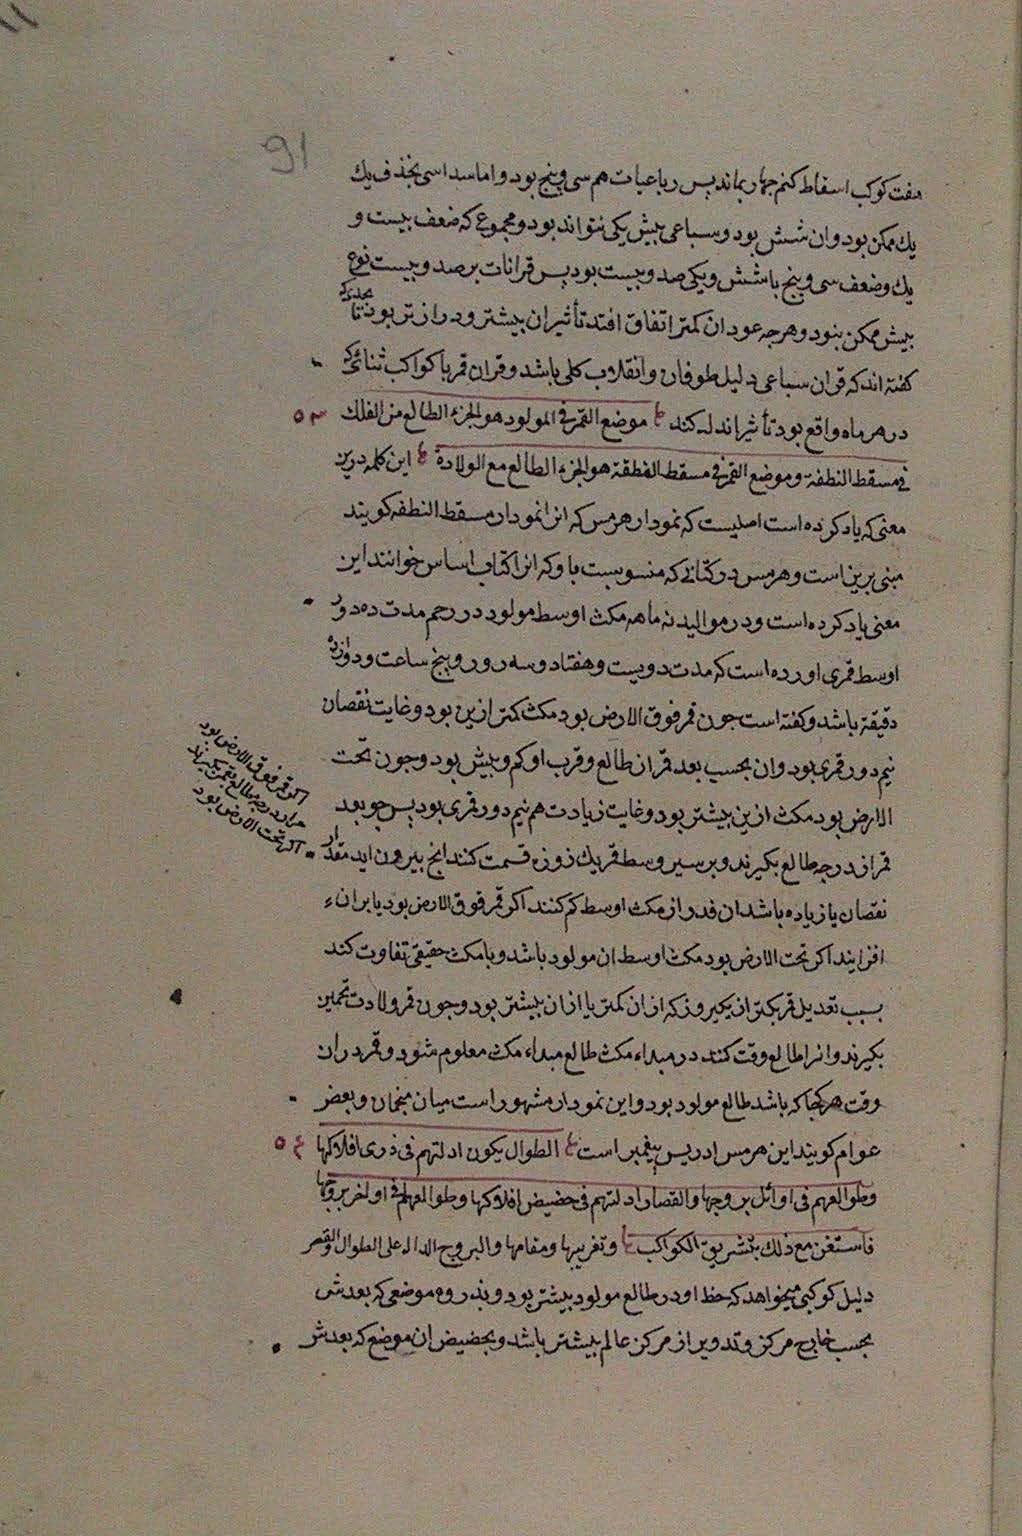 91
هفت کوکب اسقاط کنم چهار بماند پس رباعیات هم سی وپنج بود واما سداسی بحذف یك
یك ممکن بود وان شش بود وسباعی بیش یکی نتواند بود ومجموعی که ضعف بیست و
یك وضعف سی وپنج باشش ویکی صد وبیست بود پس قرانات بر صد وبیست نوع
بیش ممکن بنود وهرچه عود ان کمتر اتفاق افتد تأثیر ان بیشتر ودرازتر بود تا بحدیکه
کفته اند که قران سباعی دلیل طوفان وانقلاب کلی باشد وقران قمر با کواکب ثنائی که
در هر ماه واقع بود تأثیر اندك کند موضع القمر فی المولود هو الجزء الطالع من الفلك
فی مسقط النطفة وموضع القمر فی مسقط النطفة هو الجزء الطالع مع الولادة این کلمه درین
معنی که یاد کرده است اصلیست که نمودار هرمس که انرا نمودار مسقط النطفه کویند
مبنی برین است وهرمس در کتابی که منسوبست باو که انرا کتاب اساس خوانند این
معنی یاد کرده است ودر موالید نه ماهه مکث اوسط مولود در رحم مدت ده دور
اوسط قمری اورده است که مدت دویست وهفتاد وسه روز وپنج ساعت ودوازده
دقیقة باشد وکفتة است چون قمر فوق الارض بود مکث کمتر ازین بود وغایت نقصان
نیم دور قمری بود وان بحسب بعد قمر ان طالع وقرب او کم وبیش بود وچون تحت
الارض بود مکث ازین بیشتر بود وغایت زیادت هم نیم دور قمری بود پس چو بعد
قمر از درجه طالع بکیرند وبر سیر وسط قمر یك روزه قسمت کنند انچ بیرون اید مقدار
نقصان یا زیاده باشد ان قدر از مکث اوسط کم کنند اکر قمر فوق الارض بود یا بران
افزایند اکر تحت الارض بود مکث اوسط ان مولود باشد وبا مکث حقیقی تفاوت کند
بسبب تعدیل قمر بکتر از یکروز که از ان کمتر یا از ان بیشتر بود وچون قمر ولادت تخمین
بکیرند وانرا طالع وقت کنند در مبداء مکث طالع مبداء مکث معلوم شود وقمر در ان
وقت هر کجا که باشد طالع مولود بود واین نمودار مشهور است میان منجمان وبعض
عوام کویند این هرمس ادریس پیغمبر است الطوال یکون ادلتهم فی ذری افلاکها
وطوالعهم فی اوائل بروجها والقصار ادلتهم فی حضیض افلاکها وطوالعهم فی اواخر بروجها
فاستعن مع ذلك بتشریق الکواکب وتغریبها ومقامها والبروج الدالة علی الطوال والقصر
دلیل کوکبی میخواهد که حظ او در طالع مولود بیشتر بود وبذروه موضعی که بعدش
بحسب خارج مرکز وتدویر از مرکز عالم بیشتر باشد وبحضیض ان موضع که بعدش
اکر قمر فوق الارض بود
از درجه طالع بقمر بکیرند
اکر تحت الارض بود